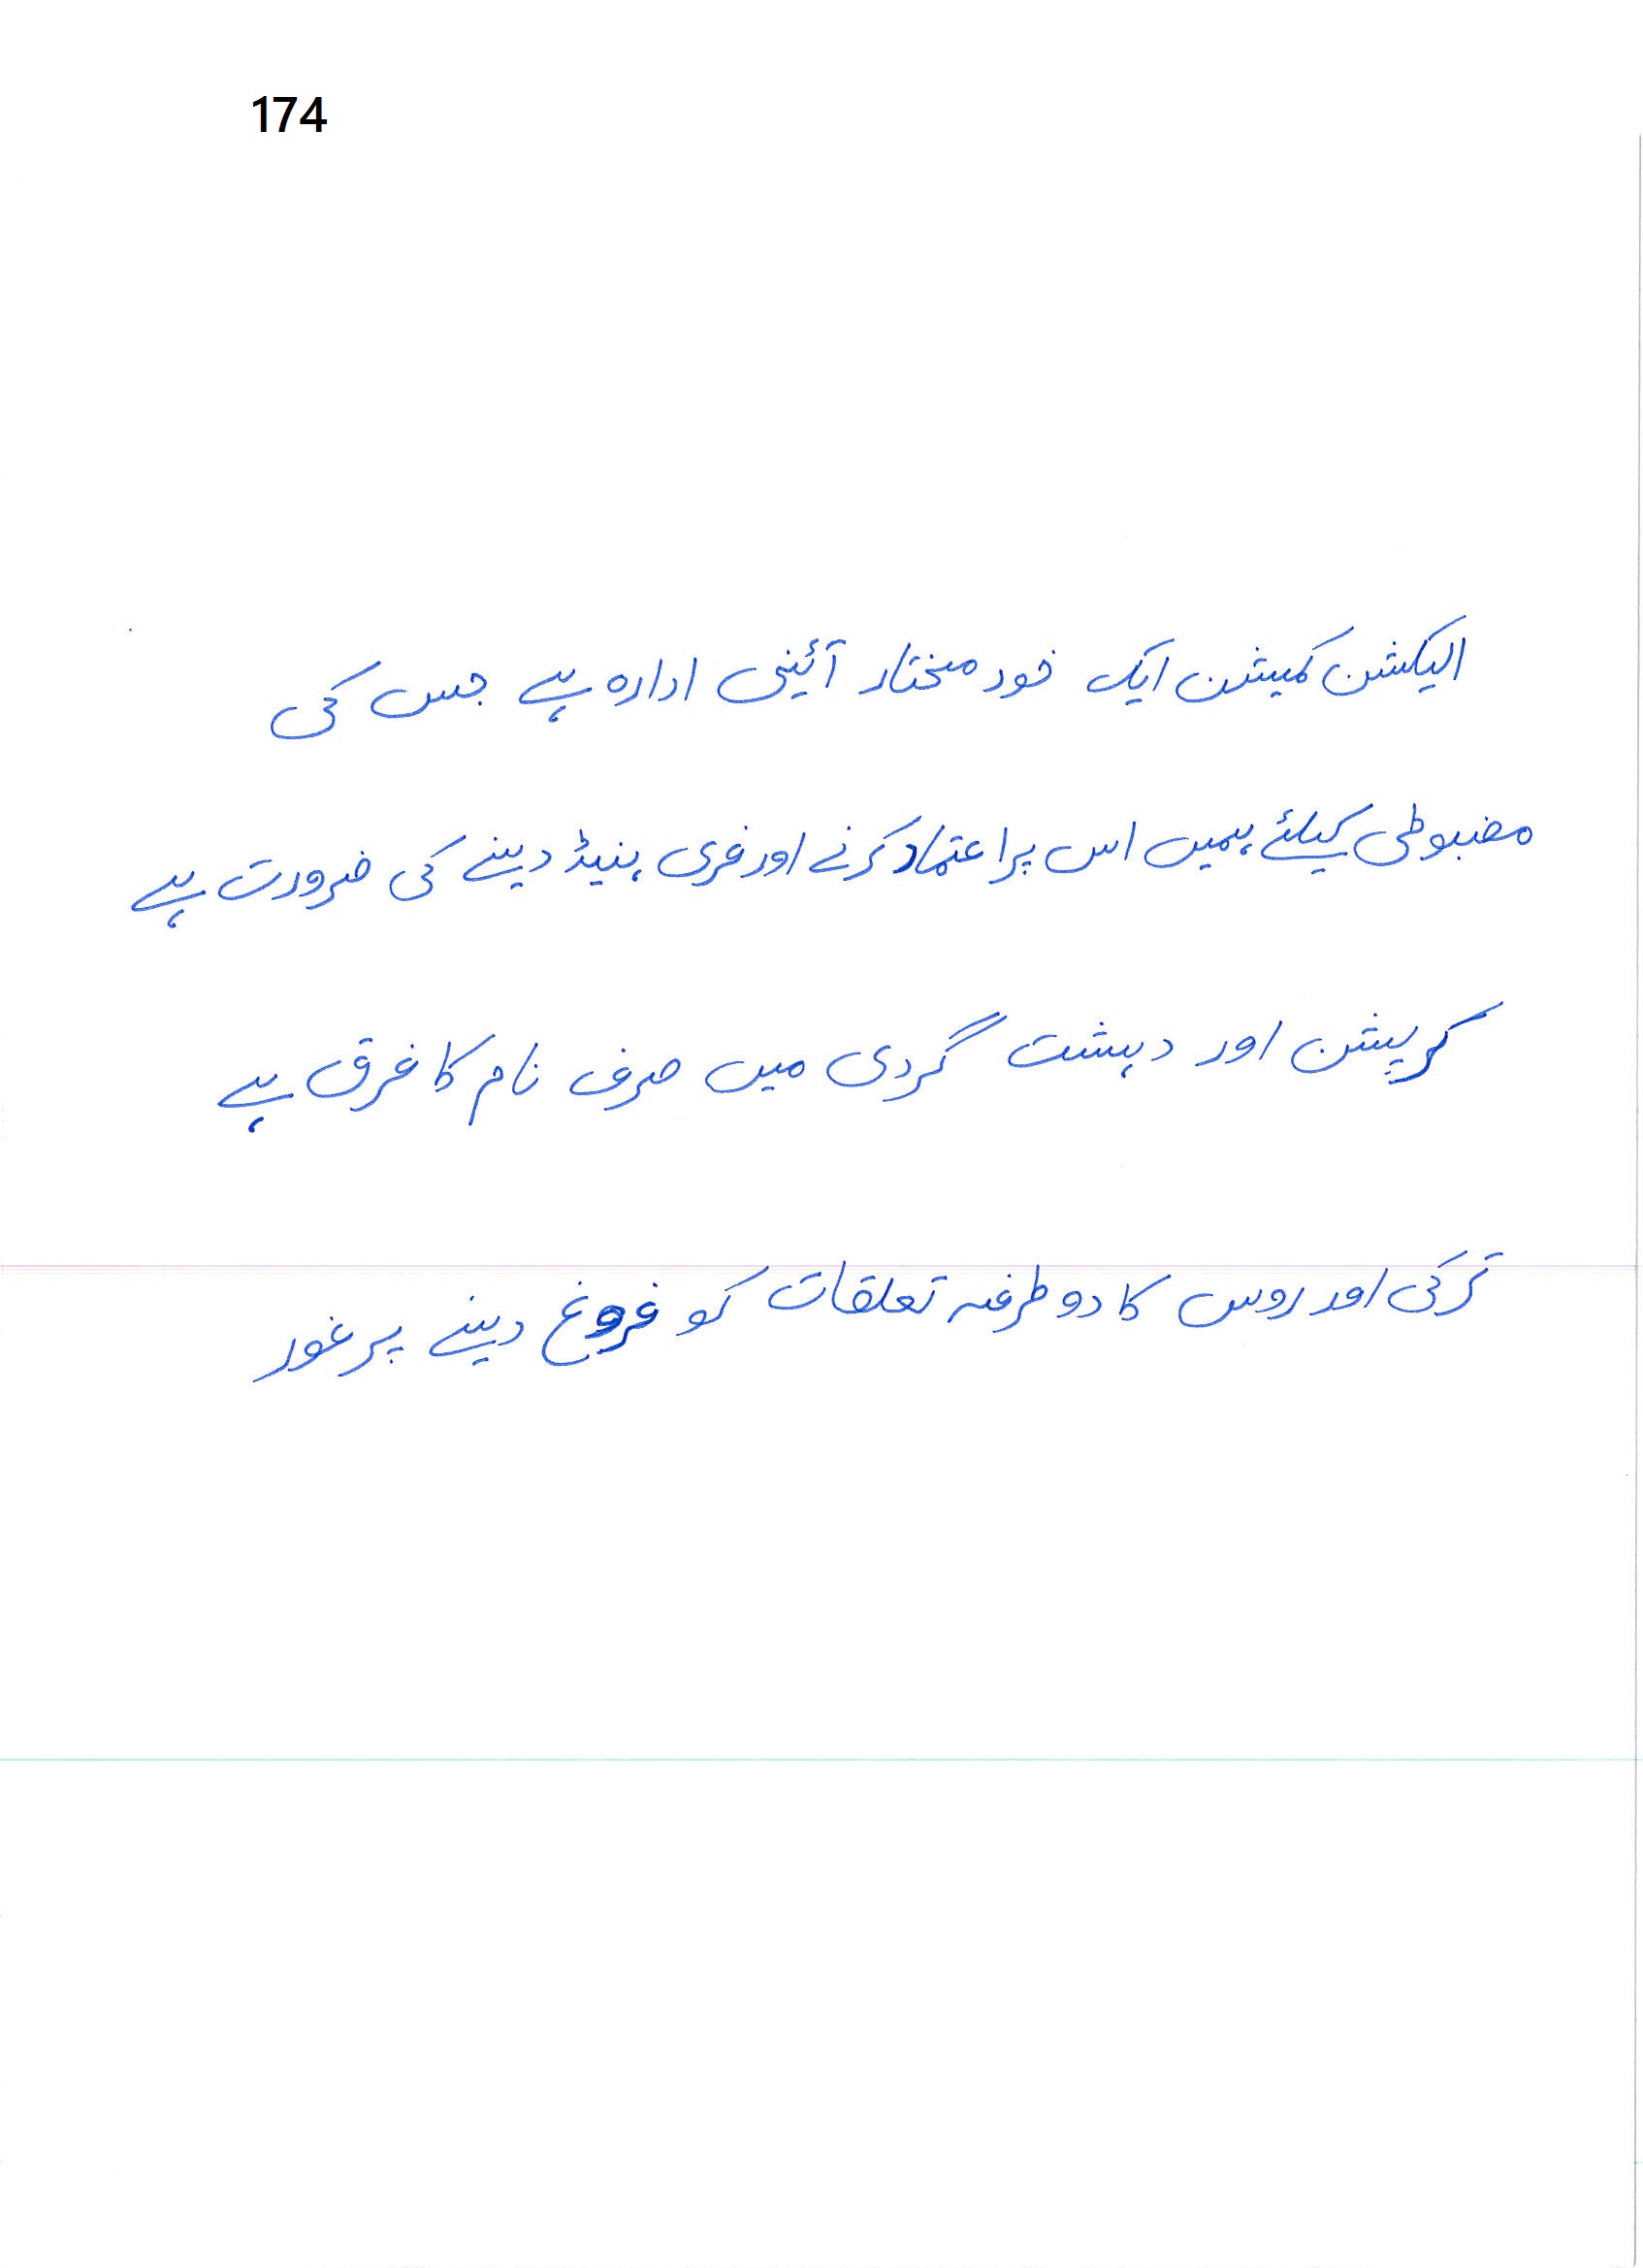 174
الیکشن کمیشن ایک خود مختار آئینی ادارہ ہے جس کی
مضبوطی کیلئے ہمیں اس پر اعتماد کرنے اور فری ہنیڈ دینے کی ضرورت ہے
کرپشن اور دہشت گردی میں صرف نام کا فرق ہے
ترکی اور روس کا دو طرفہ تعلقات کو فروغ دینے پر غور